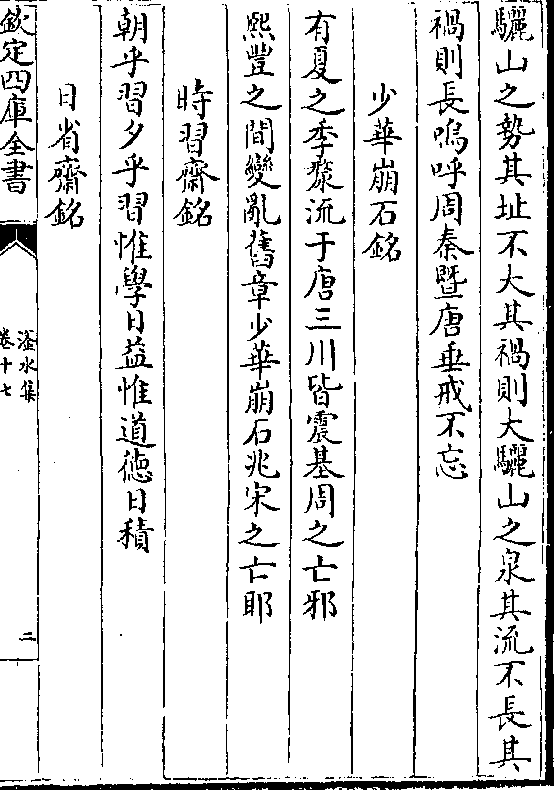 驪山之勢其址不大其禍則大驪山之泉其流不長其
禍則長嗚呼周秦暨唐垂戒不忘
少華崩石銘
有夏之季漦流于唐三川皆震基周之亡邪
熙豐之間變亂舊章少華崩石兆宋之亡耶
時習齋銘
朝乎習夕乎習惟學日益惟道徳日積
日省齋銘
欽定四庫全書
滏水集
卷十七
二